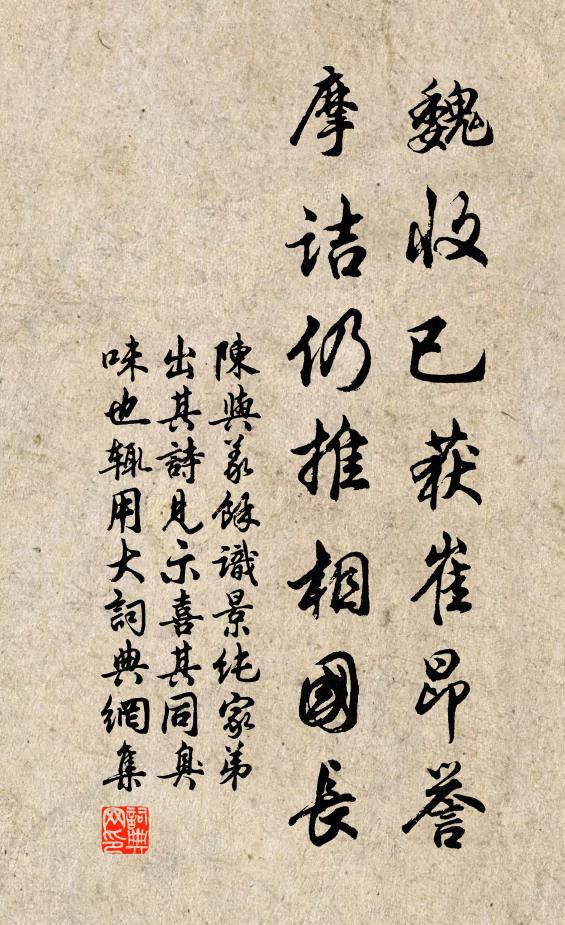 魏收已获崔昂誉
摩诘仍推相國長
陳與義餘識景纯家弟
出其詩見示喜其同臭
味也輒用大詞典網集
詞典网印